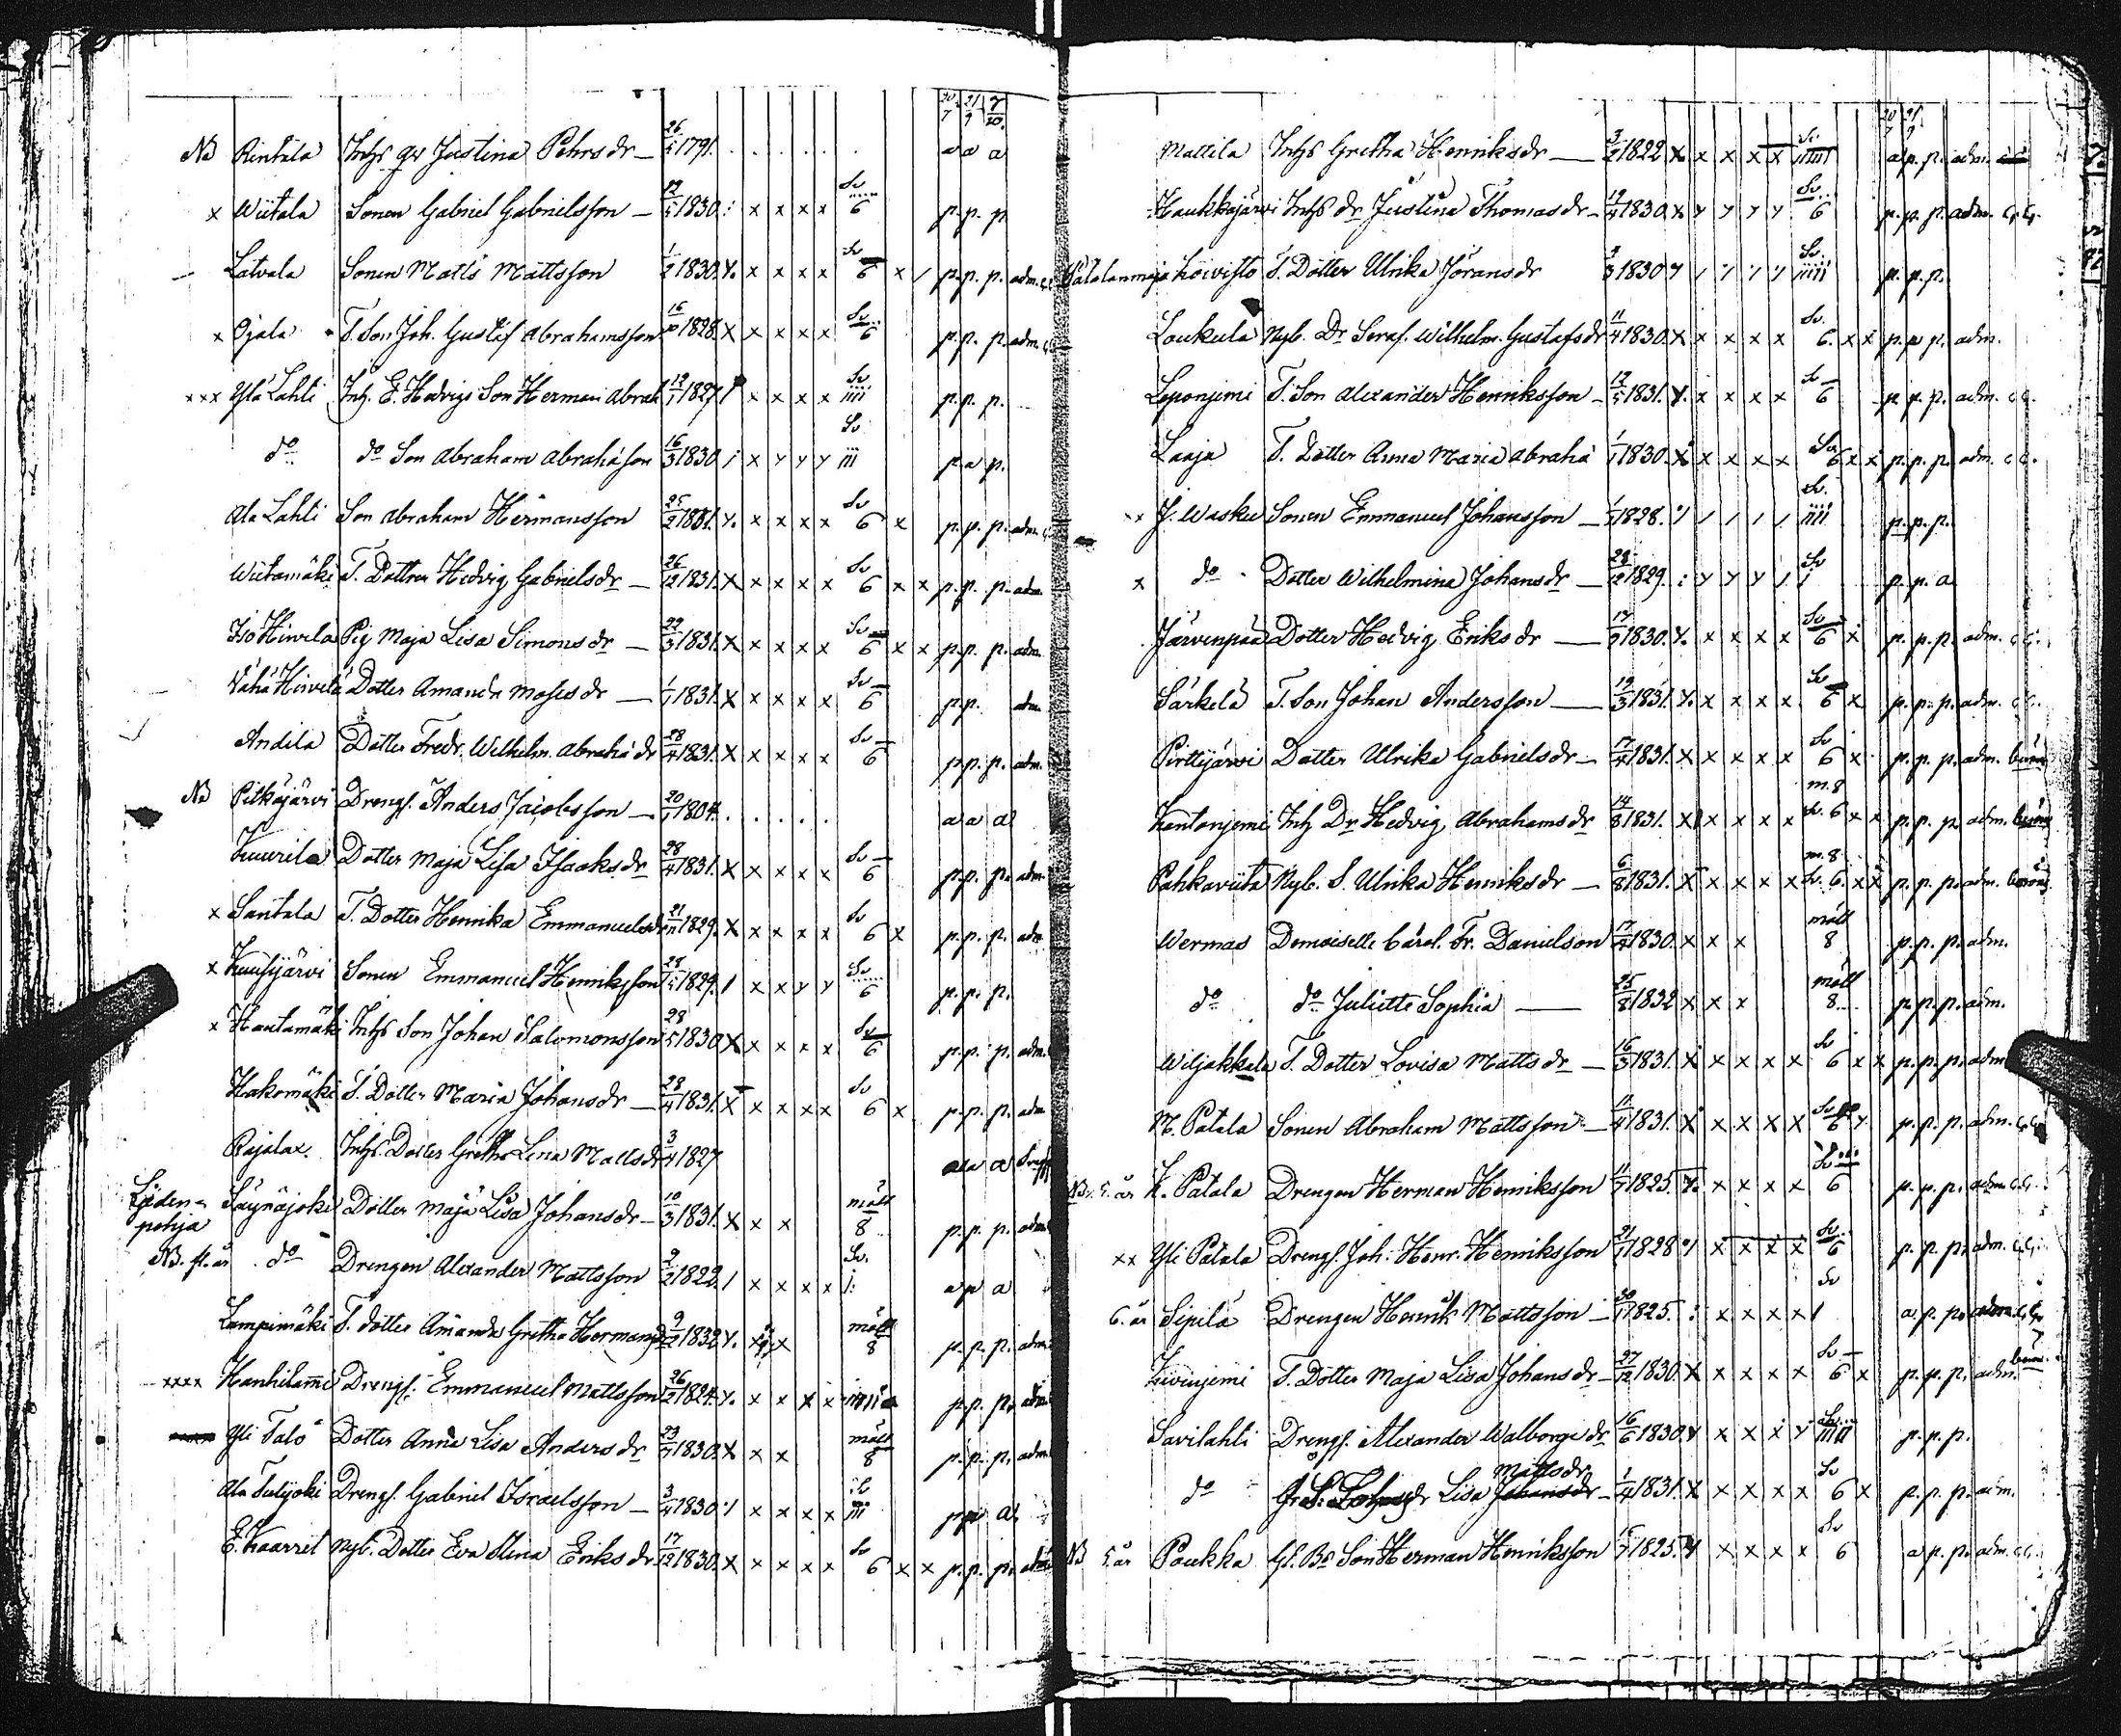 30/7 21/9 7/10.
NB Rintala Inhs qv Justina Pehrs dr — 26/5 1791. . . . . . a a a
x Wiitala Sonen Gabriel Gabrielsson — 12/5 1830. : x x x x Sv 6 p. p. p
— Latvala Sonen Matts Mattsson 1/2 1830. y. x x x x Sv 6 x / p. p. p. adm.
x Ojala T. Son Joh. Gustaf Abrahamsson 16/10 1828. x x x x x Sv 6 p. p. p. adm.
xxx Ylä Lahti Inh. E. Hedvigs Son Herman Abrah 19/1 1827 / x x x x Sv iiii p. p. p.
do do Son Abraham Abrahāson 16/3 1830 / x y y y Sv iii p a p.
Ala Lahti Son Abraham Hermansson 25/2 1831. y. x x x x Sv 6 x p. p. p. adm.
Wiitamäki T. Dotter Hedvig Gabriels dr — 26/12 1831. x x x x x Sv 6 x x p. p. p. adm.
Iso Hirvelä Pig Maja Lisa Simons dr — 22/3 1831. x x x x x Sv 6 x x p. p. p. adm
Vähä Hirvelä Dotter Amanda Moses dr — 1/7 1831. x x x x x Sv 6 p. p. adm
Andila Dotter Fredr. Wilhelm. Abrahā dr 28/4 1831. x x x x x Sv 6 p. p. p. adm.
NB Pitkäjärvi Drengs. Anders Jacobsson — 20/1 1804. . . . . a a a
Kuurila Dotter Maja Lisa Isaaks dr 28/4 1831. x x x x x Sv 6 p. p. p. adm.
x Santala T. Dotter Henrika Emmanuels dr 21/11 1829. x x x x x Sv 6 x p. p. p. adm
x Kuusijärvi Sonen Emmanuel Henriksson 28/5 1829. / x x y y Sv 6 p. p. p.
x Hautamäki Inhs Son Johan Salomonsson 28/5 1830 x x x x x Sv 6 p. p. p. adm.
Hakomäki T. Dotter Maria Johans dr — 28/4 1831. x x x x x Sv 6 x p. p. p. adm
Rajalax. Inhs. Dotter Gretha Lena Matts dr 3/4 1827 a a a
Lyden-
pohja Säynäjoki Dotter Maja Lisa Johans dr — 10/3 1831. x x x mått 8 p. p. p. adm
NB. fl. år do Drengen Alexander Mattsson 2/2 1822. / x x x x Sv. /: a p a
Lampimäki T. dotter Amanda Gretha Hermans dr 9/2 1832 y. x x mått 8 p. p. p. adm.
xxxx Hanhilam̄i Drengs. Emmanuel Mattsson 26/2 1824. y. x x x x p. p. p. adm
Yli Talo Dotter Anna Lisa Anders dr 23/4 1830. x x x mått 8 p. p. p. adm.
Ala Tulijoki Drengs. Gabriel Israelsson — 3/4 1830 / x x x x iii p p a.
E. Kaarret Nyb. Dotter Eva Stina Eriks dr 17/12 1830. x x x x x Sv 6 x x p. p. p. adm
30/7 21/9
Mattila Inhs Gretha Henriks dr — 3/2 1822 x x x x x Sv iiiii a p. p. adm.
Haukkajärvi Inhs dr Justina Thomas dr — 19/4 1830. x y y y y Sv 6 p. p. p. adm.
Koivisto T. Dotter Ulrika Jörans dr 3/3 1830 y / y y y Sv iiiii p. p. p.
Loukula Nyb. Dr Seraf. Wilhelm. Gustafs dr 11/4 1830. x x x x x Sv. 6. x x p. p. p. adm.
Leponjemi T. Son Alexander Henriksson — 12/5 1831. y. x x x x Sv 6 p. p. p. adm.
Laaja T. Dotter Anna Maria Abrahā 1/1 1830. x x x x x Sv 6 x x p. p. p. adm.
xx J. Wasku Sonen Emmanuel Johansson — 1828. / / / / / Sv. iiii p. p. p.
x do Dotter Wilhelmina Johans dr — 28/12 1829. : y y y / Sv / p. p. a
Järvenpää Dotter Hedvig Eriks dr — 13/9 1830. y. x x x x Sv 6 x p. p. p. adm.
Särkelä T. Son Johan Andersson — 19/3 1831. y. x x x x Sv 6 x p. p. p. adm.
Pirttijärvi Dotter Ulrika Gabriels dr — 17/4 1831. x x x x x Sv 6 x p. p. p. adm.
Kantonjemi Inh Dr Hedvig Abrahams dr 14/8 1831. x x x x x m. 8 Sv. 6 x x p. p. p. adm.
Pahkaviita Nyb. S. Ulrika Henriks dr — 6/8 1831. x x x x x m. 8 Sv. 6. x x p. p. p. adm.
Wermas Demoiselle Carol. Fr. Danielson 17/4 1830. x x x mått 8 p. p. p. adm.
do do Juliette Sophia — 25/8 1832 x x x mått 8 p. p. p. adm.
Wiljakkala T. Dotter Lovisa Matts dr — 16/3 1831. x x x x x Sv 6 x x p. p. p. adm
M. Patala Sonen Abraham Mattsson — 11/4 1831. x x x x x Sv 6 y p. p. p. adm.
NB. 5. år K. Patala Drengen Herman Henriksson 11/7 1825. y. x x x x Sv 6 p. p. p. adm.
xx Yli Patala Drengs. Joh. Henr. Henriksson 21/1 1828 / x x x x Sv 6 p. p. p. adm.
6. år Sipilä Drengen Henrik Mattsson — 30/1 1825. : x x x x Sv / a p. p. adm.
Kivinjemi T. Dotter Maja Lisa Johans dr — 27/12 1830. x x x x x Sv 6 x p. p. p. adm.
Savilahti Drengs. Alexander Walborgs dr 16/6 1830 y x x x y Sv iiiii p. p. p.
Matts dr
do Lisa Johans dr — 1/4 1831. x x x x x Sv 6 x p. p. p. adm.
NB 5. år Paukka Gl. Bs Son Herman Henriksson 15/7 1825. y x x x x Sv 6 a p. p. adm.